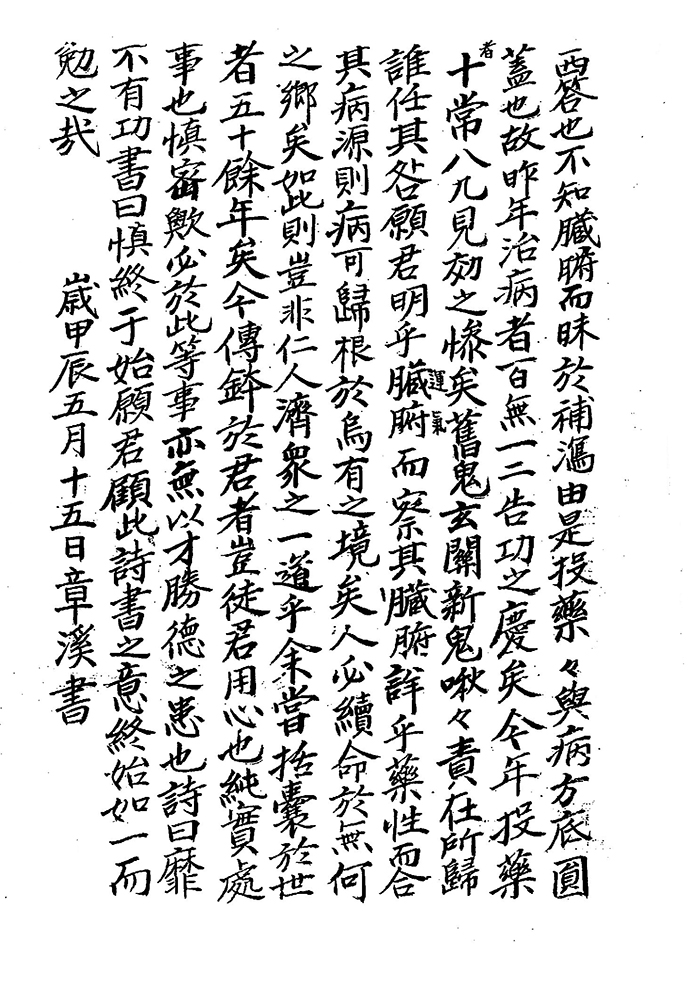 西答也不知臟腑而昧於補瀉由是投藥々與病方底圓
蓋也故昨年治病者百無一二告功之慶矣今年投藥
者十常八九見効之慘矣舊鬼玄關新鬼啾々責在所歸
誰任其咎願君明乎臟腑運氣而察其臟腑詳乎藥性而合
其病源則病可歸根於烏有之境矣人必續命於無何
之鄉矣如此則豈非仁人濟衆之一道乎余嘗括囊於世
者五十餘年矣今傳鉢於君者豈徒君用心也純實處
事也慎密歟必於此等事亦無以才勝德之患也詩曰靡
不有功書曰慎終于始願君顧此詩書之意終始如一而
勉之哉 歲甲辰五月十五日章溪書